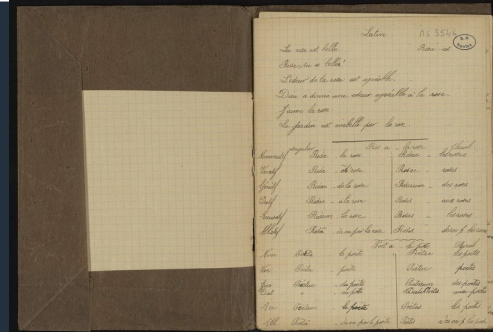 Latin
MS 3544
La rose est belle
Rose, tu es belle!
L'odeur de la rose est agréable.
Dieu a donné une odeur agréable à la rose
J'aime la rose
Le jardin est embelli par la rose
singulier Ros a - la rose Pluriel
Nominatif Rosa la rose Rosae les roses
Vocatif Rosa rose Rosae roses
Génitif Rosae de la rose Rosarum des roses
Datif Rosae à la rose Rosis aux roses
Accusatif Rosam la rose Rosas les roses
Ablatif Rosa de ou par la rose Rosis
Poët a le poëte Pluriel
Nom Poëta le poëte Poëtae les poëtes
Voc Poëta poëte Poëtae poëtes
Gen Poëtae du poëte Poëtarum des poëtes
Dat au poëte Poëtis aux poëtes
Acc Poëtam le poëte Poëtas les poëtes
Abl Poëta de ou par le poëte Poëtis